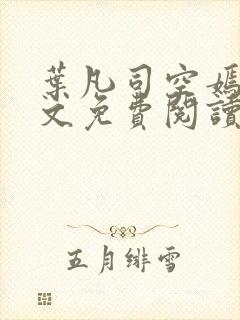 葉凡司空嫣
文免費閱讀
五月緋雪